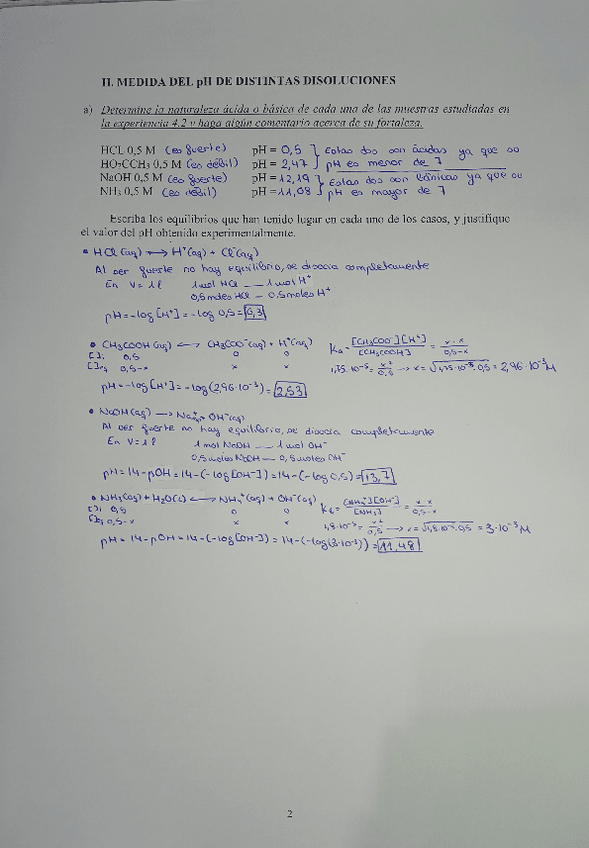 II. MEDIDA DEL pH DE DISTINTAS DISOLUCIONES
a) Determine la naturaleza ácida o básica de cada una de las muestras estudiadas en
la experiencia 4.2 y haga algún comentario acerca de su fortaleza.
HCL 0,5 M (es fuerte) pH = 0,5 } Estas dos son ácidas ya que su
HO2CCH3 0,5 M (es débil) pH = 2,47 } pH es menor de 7
NaOH 0,5 M (es fuerte) pH = 12,19 } Estas dos son básicas ya que su
NH3 0,5 M (es débil) pH = 11,08 } pH es mayor de 7
Escriba los equilibrios que han tenido lugar en cada uno de los casos, y justifique
el valor del pH obtenido experimentalmente.
• HCl (aq) ⟷ H⁺(aq) + Cl⁻(aq)
Al ser fuerte no hay equilibrio, se disocia completamente
En V = 1 l 1 mol HCl __ 1 mol H⁺
0,5 moles HCl – 0,5 moles H⁺
pH = -log [H⁺] = -log 0,5 = 0,3
• CH3COOH (aq) ⟷ CH3COO⁻(aq) + H⁺(aq) Ka = [CH3COO⁻][H⁺]/[CH3COOH] = x·x/0,5-x
[ ]i 0,5 0 0
[ ]eq 0,5-x x x 1,75·10⁻⁵ = x²/0,5 → x = √1,75·10⁻⁵·0,5 = 2,96·10⁻³ M
pH = -log [H⁺] = -log (2,96·10⁻³) = 2,53
• NaOH (aq) → Na⁺(aq) + OH⁻(aq)
Al ser fuerte no hay equilibrio, se disocia completamente
En V = 1 l 1 mol NaOH __ 1 mol OH⁻
0,5 moles NaOH – 0,5 moles OH⁻
pH = 14 - pOH = 14 - (-log [OH⁻]) = 14 - (-log 0,5) = 13,7
• NH3 (aq) + H2O (l) ⟷ NH4⁺(aq) + OH⁻(aq) Kb = [NH4⁺][OH⁻]/[NH3] = x·x/0,5-x
[ ]i 0,5 0 0
[ ]eq 0,5-x x x 1,8·10⁻⁵ = x²/0,5 → x = √1,8·10⁻⁵·0,5 = 3·10⁻³ M
pH = 14 - pOH = 14 - (-log [OH⁻]) = 14 - (-log (3·10⁻³)) = 11,48
2